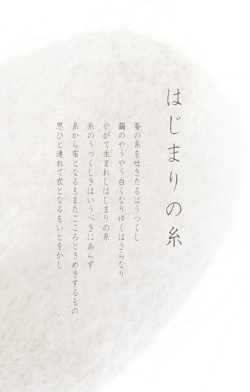 はじまりの糸
蚕の糸を吐きたるはうつくし
繭のやうやう白くなりゆくはさらなり
やがて生まれしはじまりの糸
糸のうつくしきはいうべきにあらず
糸から布となるもまたこころときめきするもの
思ひと連れて衣となるもいとをかし